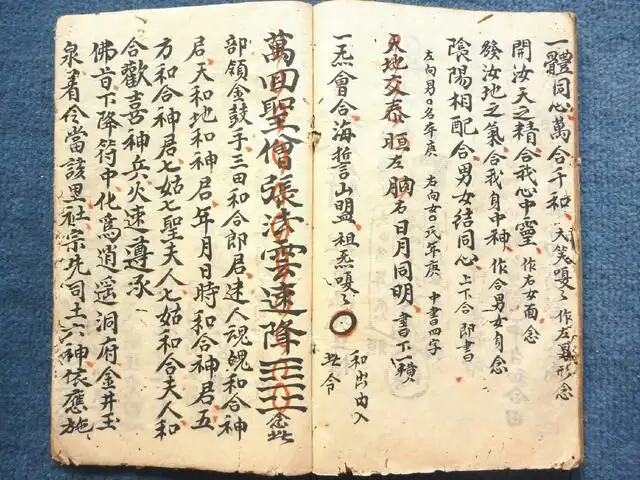 一體同心萬合千和 大笑嗄〻作左男形念
開汝天之精合我心中靈 作右女面念
發汝地之氣合我身中神 作合男女身念
陰陽相配合男女結同心 上下合 即書
左向男〇名年庚 右向女〇氏年庚 中書四字
天地交泰 晅左 胸右 日月同明 書下一橫
一炁會合海誓山盟祖炁嗄〻
和出由入
此令
萬回聖僧張法雲速降 念此
部領金鼓手三田和合郎君迷人魂魄和合神
君天和地和神君年月日時和合神君五
方和合神君七姑七聖夫人七姑和合夫人和
合歡喜神兵火速遵承
佛旨下降符中化為逍遥洞府金井玉
泉着令當該里社宗先司土六神依應施